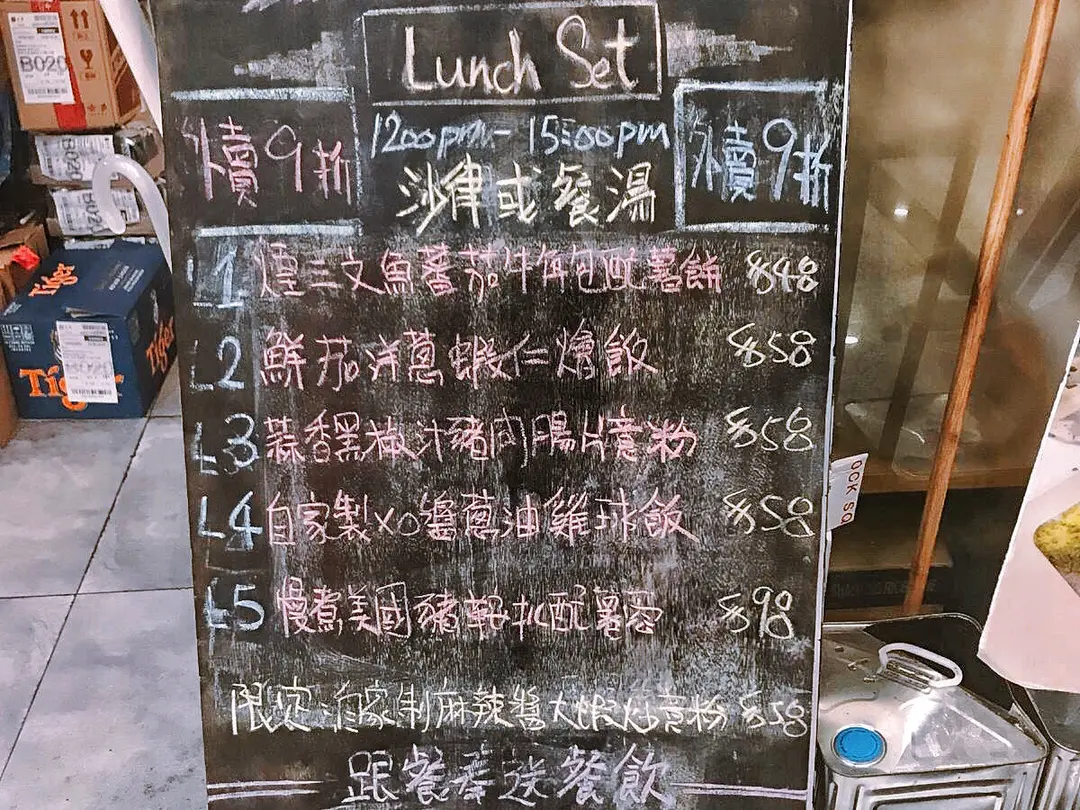 Lunch Set
外賣9折
1200pm-15:00pm
外賣9折
沙律或餐湯
L1 煙三文魚蕃茄牛角包配薯餅 $48
L2 鮮茄洋蔥蝦仁燴飯 $58
L3 蒜香黑椒汁豬肉腸片意粉 $58
L4 自家製XO醬蔥油雞球飯 $58
L5 慢煮美國豬鞍扒配薯蓉 $98
限定:自家制麻辣醬大蝦炒意粉 $58
跟餐奉送餐飲
B020
B020
Tiger
Tiger
Tiger
OCK SQ